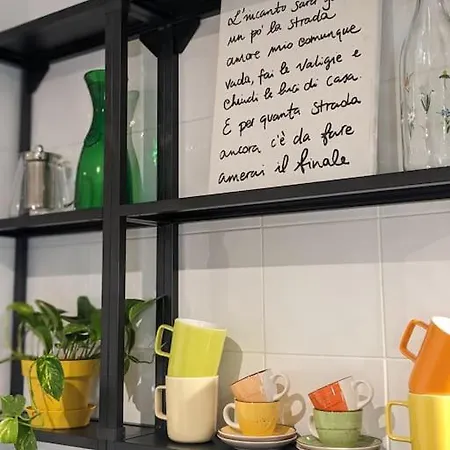 L'incanto sarà
un po' la strada
amore mio comunque
vada, fai le valigie e
chiudi le luci di casa.
E per quanta strada
ancora c'è da fare
amerai il finale